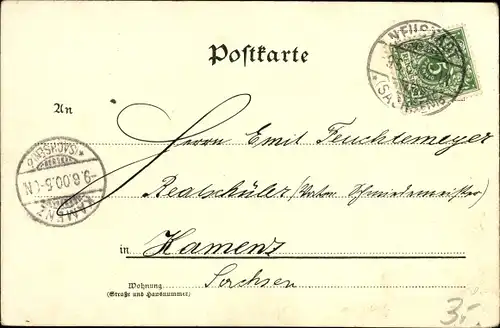 Postkarte
NEUSTADT
(SACHSEN)
An
Herrn Emil Feuchtemeyer
KAMENZ
(SACHSEN)
-9.6.00.5-6N.
Realschüler
in Kamenz
Sachsen
Wohnung
(Straße und Hausnummer)
3.-